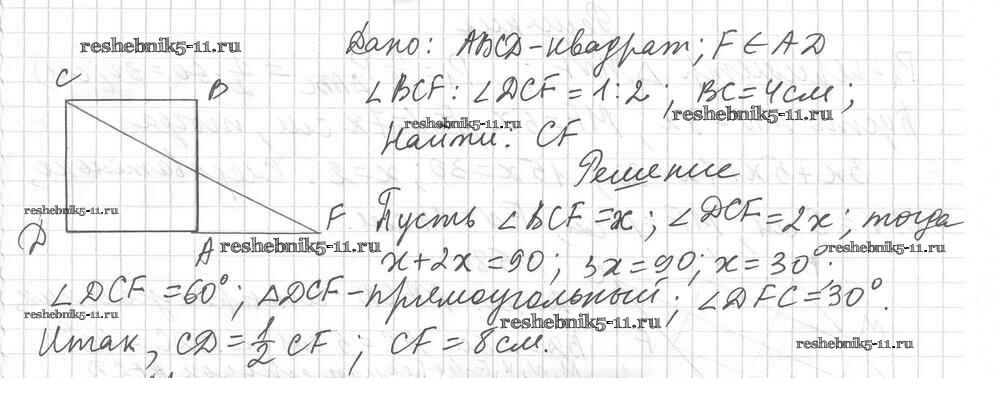 reshebnik5-11.ru
Дано: ABCD-квадрат; F ∈ AD
C
B
∠BCF : ∠DCF = 1:2; BC = 4см;
reshebnik5-11.ru
reshebnik5-11.ru
Найти: CF
Решение
reshebnik5-11.ru
D
A
F
reshebnik5-11.ru
Пусть ∠BCF = x; ∠DCF = 2x; тогда
reshebnik5-11.ru
x + 2x = 90; 3x = 90; x = 30°.
∠DCF = 60°; △DCF - прямоугольный; ∠DFC = 30°.
reshebnik5-11.ru
reshebnik5-11.ru
Итак, CD = 1/2 CF; CF = 8см.
reshebnik5-11.ru